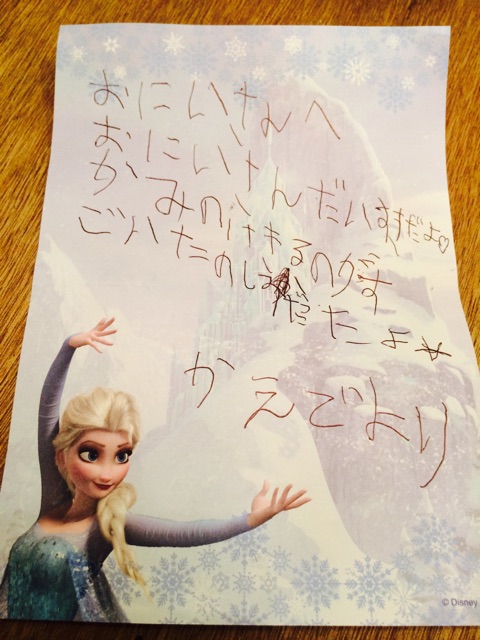 おにいさんへ
おにいさんだいすきだよ♡
かみのけきるのがす
ごいたのしかたよ★
かえでより
© Disney